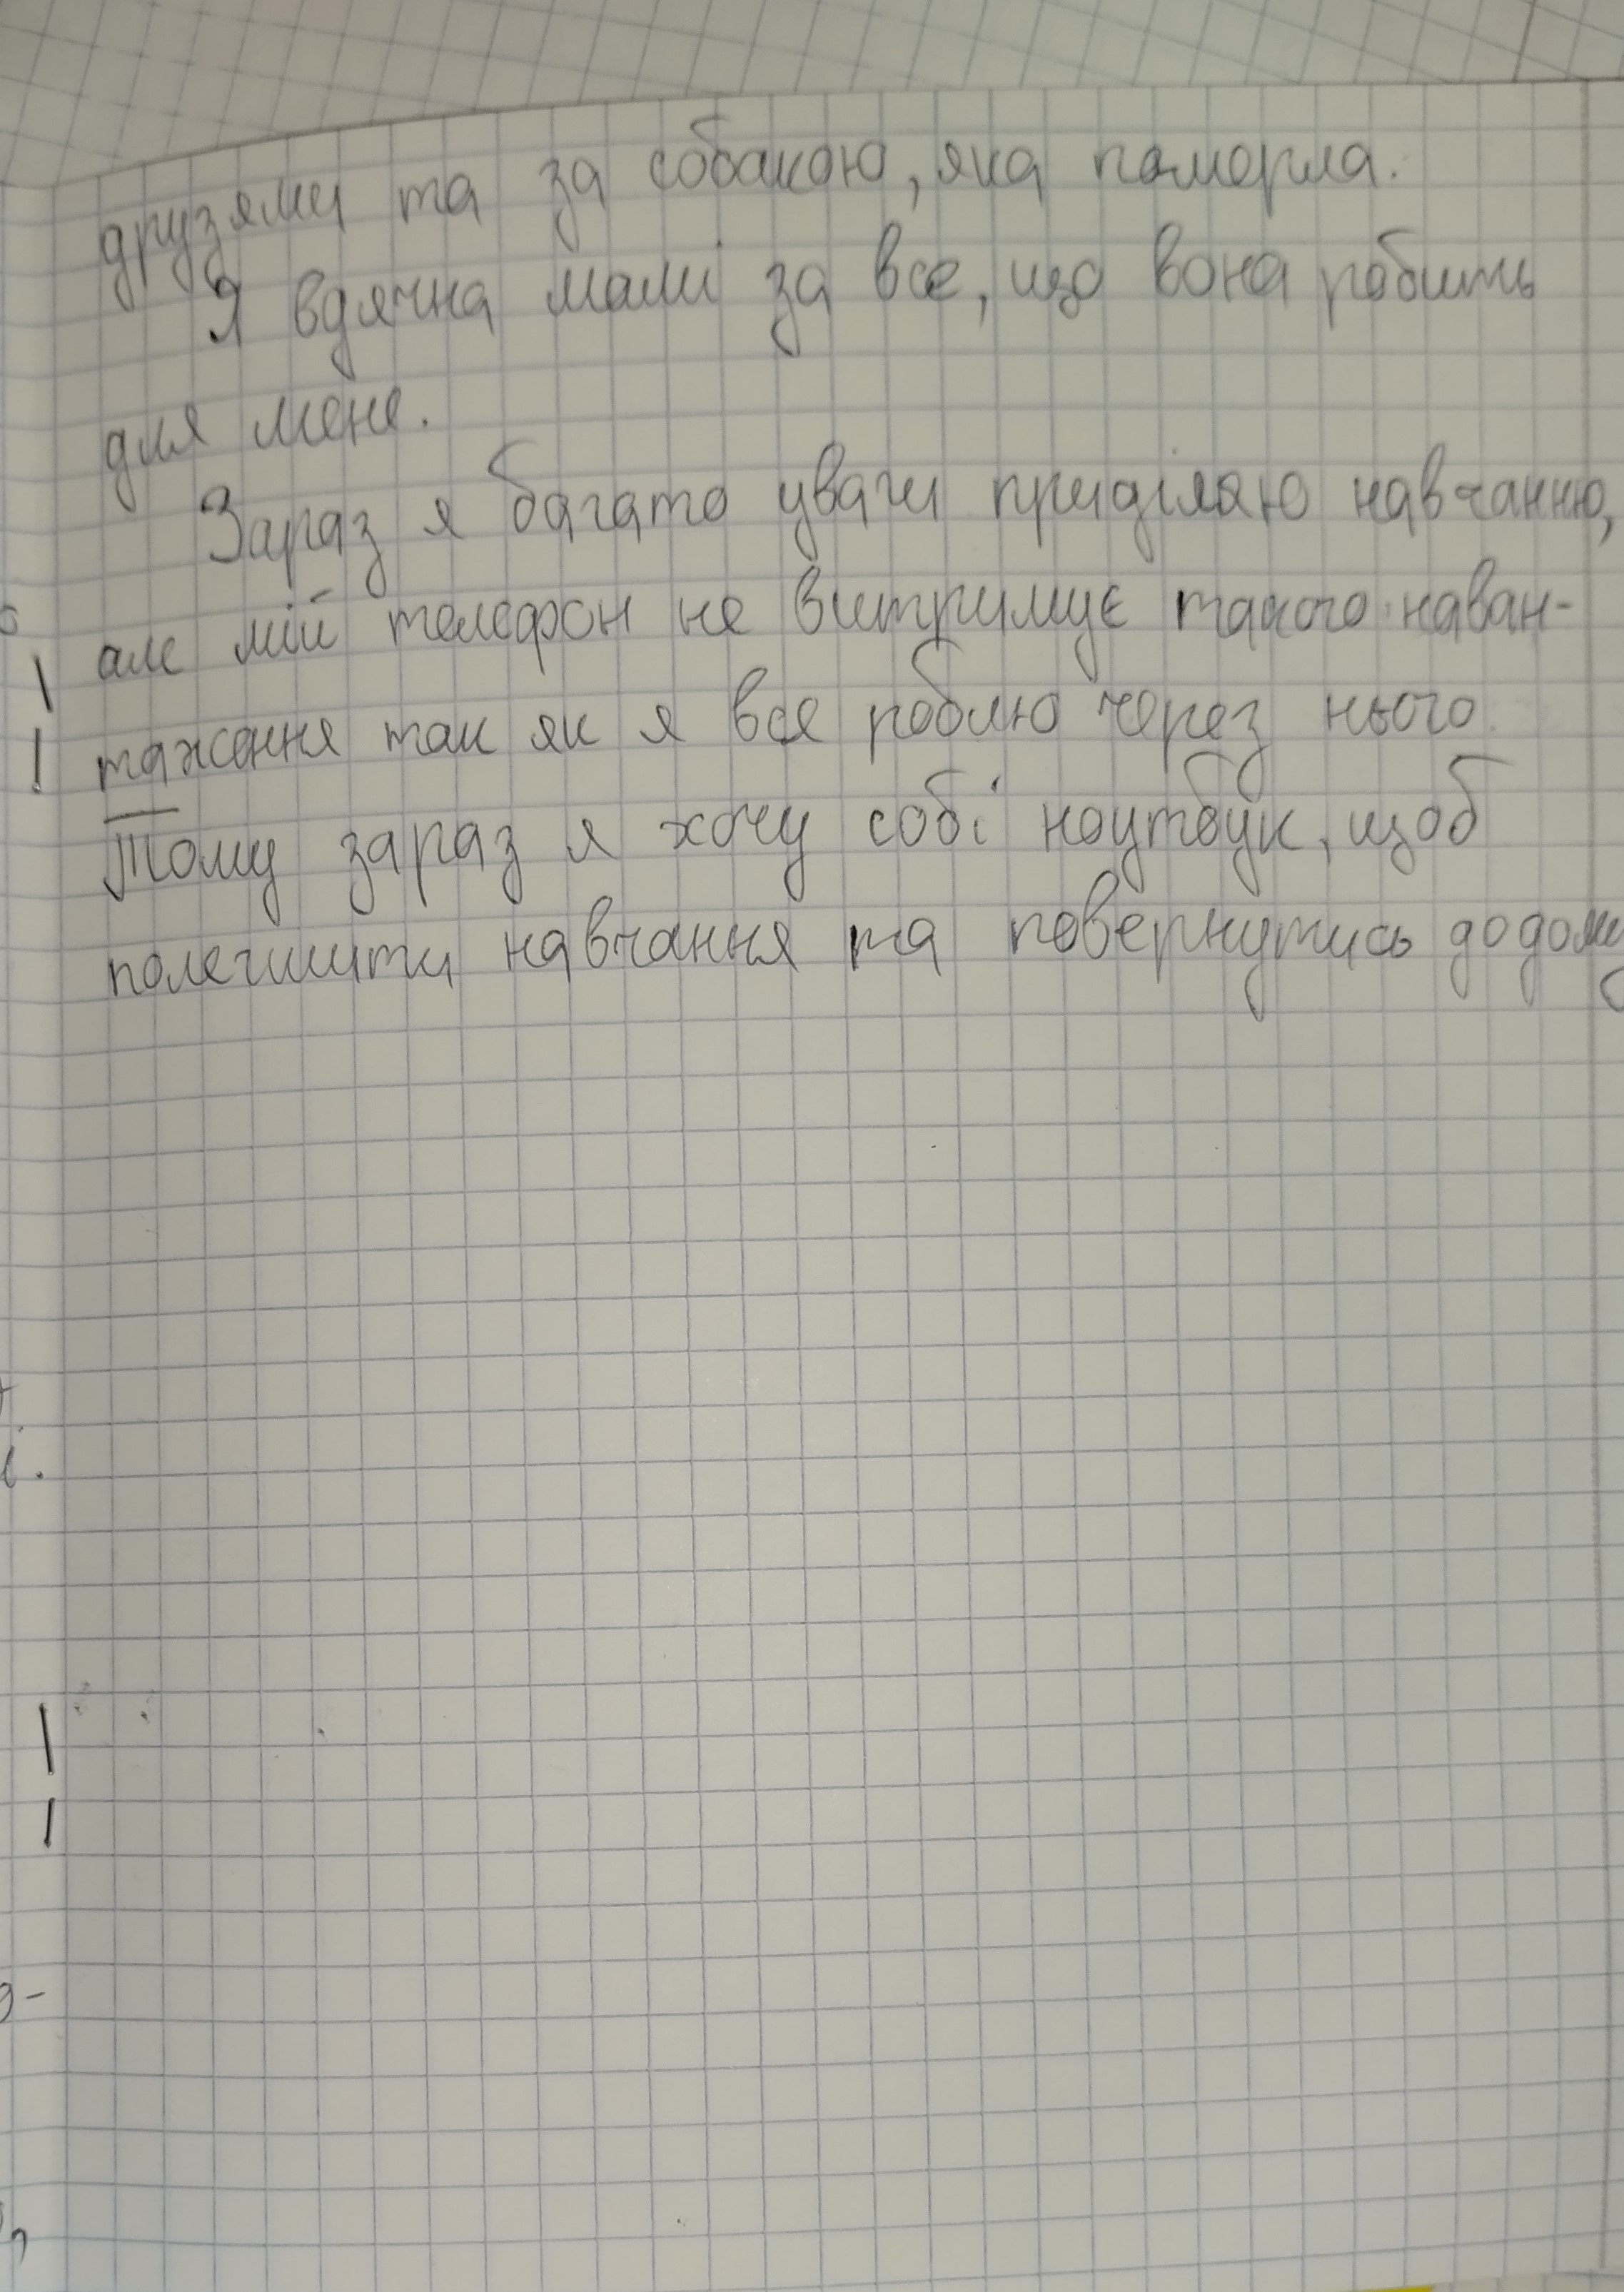 друзями та за собакою, яка померла.
Я вдячна мамі за все, що вона робить
для мене.
Зараз я багато уваги приділяю навчанню,
але мій телефон не витримує такого наван-
таження так як я все роблю через нього.
Тому зараз я хочу собі ноутбук, щоб
полегшити навчання та повернутись додому